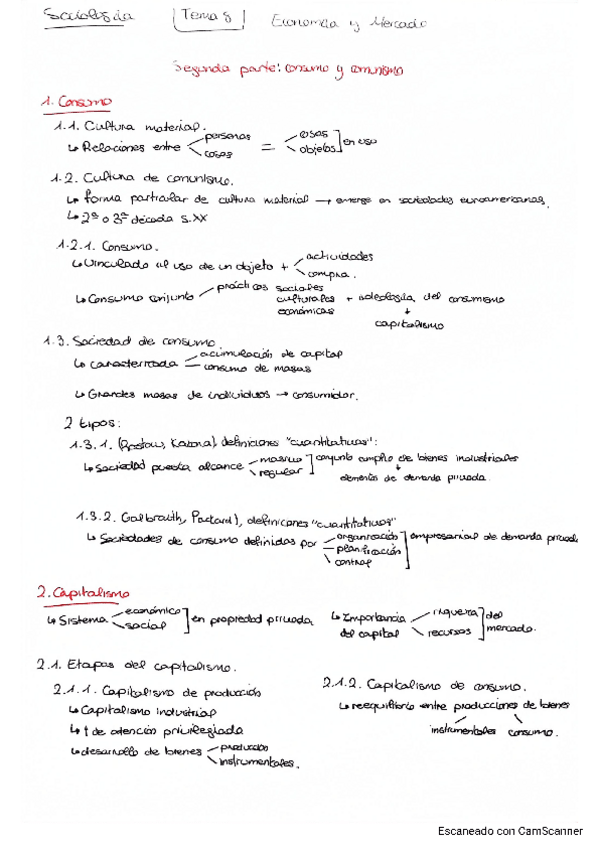 Sociología Tema 8 Economía y Mercado
Segunda parte: consumo y comunismo
1. Consumo
1.1. Cultura material.
↳ Relaciones entre personas cosas = cosas objetos en uso
1.2. Cultura de comunismo.
↳ forma particular de cultura material → emerge en sociedades euroamericanas.
↳ 2ª o 3ª década S.XX
1.2.1. Consumo.
↳ Vinculado al uso de un objeto + actividades compra.
↳ Consumo conjunto prácticas sociales culturales económicas + ideología del consumismo
↓
capitalismo
1.3. Sociedad de consumo.
↳ caracterizada acumulación de capital consumo de masas
↳ Grandes masas de individuos → consumidor.
2 tipos:
1.3.1. (Rostow, Katona), definiciones "cuantitativas":
↳ sociedad puesta alcance masivo regular conjunto amplio de bienes industriales
↓
elementos de demanda privada
1.3.2. Galbraith, Packard), definiciones "cuantitativas"
↳ Sociedades de consumo definidas por organización planificación control empresarial de demanda privada
2. Capitalismo
↳ Sistema económico social en propiedad privada
↳ Importancia del capital riqueza recursos del mercado.
2.1. Etapas del capitalismo.
2.1.1. Capitalismo de producción
↳ Capitalismo industrial
↳ ↑ de atención privilegiada
↳ desarrollo de bienes producción instrumentales.
2.1.2. Capitalismo de consumo.
↳ reequilibrio entre producciones de bienes
instrumentales consumo.
Escaneado con CamScanner